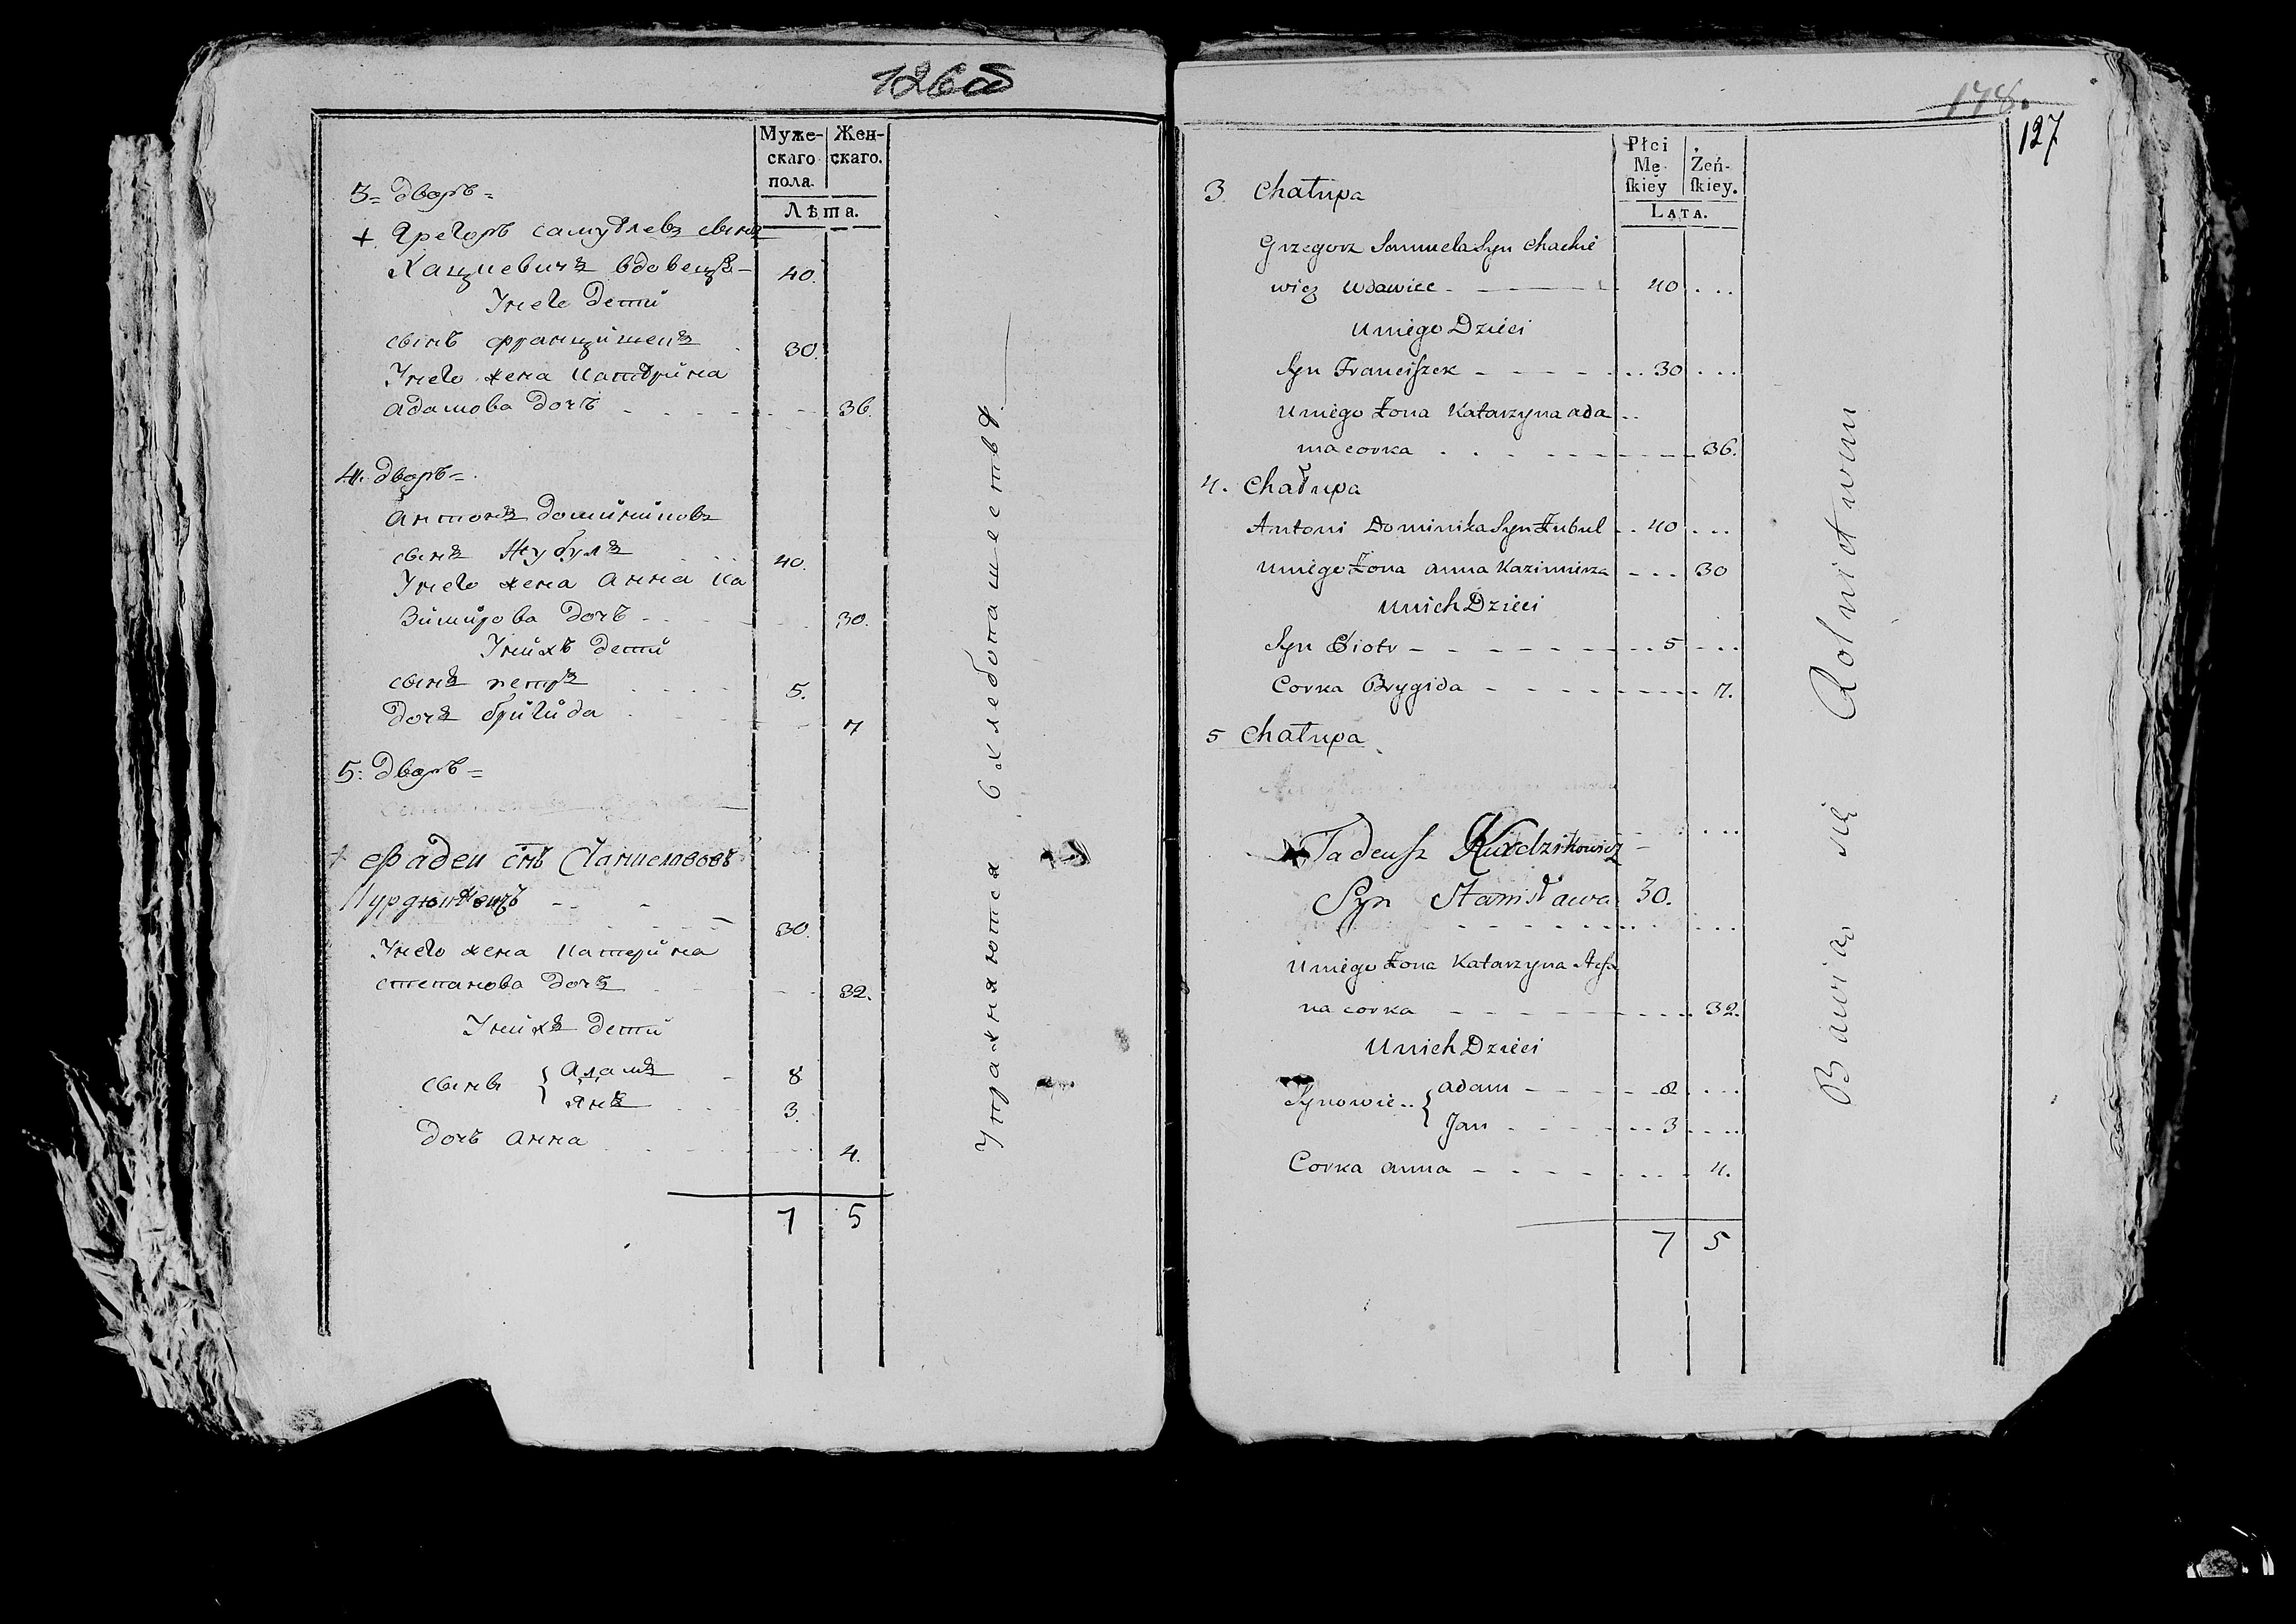 126об
Муже-
скаго
пола.
Жен-
скаго.
Лѣта.
3= дворъ=
+ Грегоръ самуѣлевъ сынъ
Хацкевичъ вдовецъ — 40.
Унего дети
сынъ францишекъ . 30.
Унего жена катѣрина
адамова дочъ 36.
4. дворъ=.
антонъ доминиковъ
сынъ Жубулъ 40.
Унего жена анна ка
зимирова дочъ 30.
Унихъ дети
сынъ петръ 5.
дочъ бригида 7
5: дворъ=
+ Фадеи снъ Станиславовъ
30.
Унего жена катерина
степанова дочъ 32.
Унихъ дети
сынъ { адамъ 8
янъ 3.
дочъ анна 4.
7 5
Упражняются в хлебопашестве.
178.
127
Płci
Mę-
ſkiey
Żeń-
ſkiey.
LATA.
3 Chałupa
Grzegorz Samuela Syn Chackie
wicz wdowiec 40 ...
U niego Dzieci
Syn Franciſzek .. 30 ...
U niego Żona Katarzyna ada ..
ma corka 36.
4. Chałupa
Antoni Dominika Syn Żubul .. 40 ...
U niego Żona anna Kazimierza 30
U nich Dzieci
Syn Piotr .. 5 ...
Corka Brygida 7.
5 Chałupa
Tadeuſz
Syn Stanisława 30.
U niego Żona Katarzyna Stefa
na corka 32.
U nich Dzieci
Synowie.. { adam 8 ....
Jan .. 3 ....
Corka anna 4.
7 5
Bawią się Rolnictwem